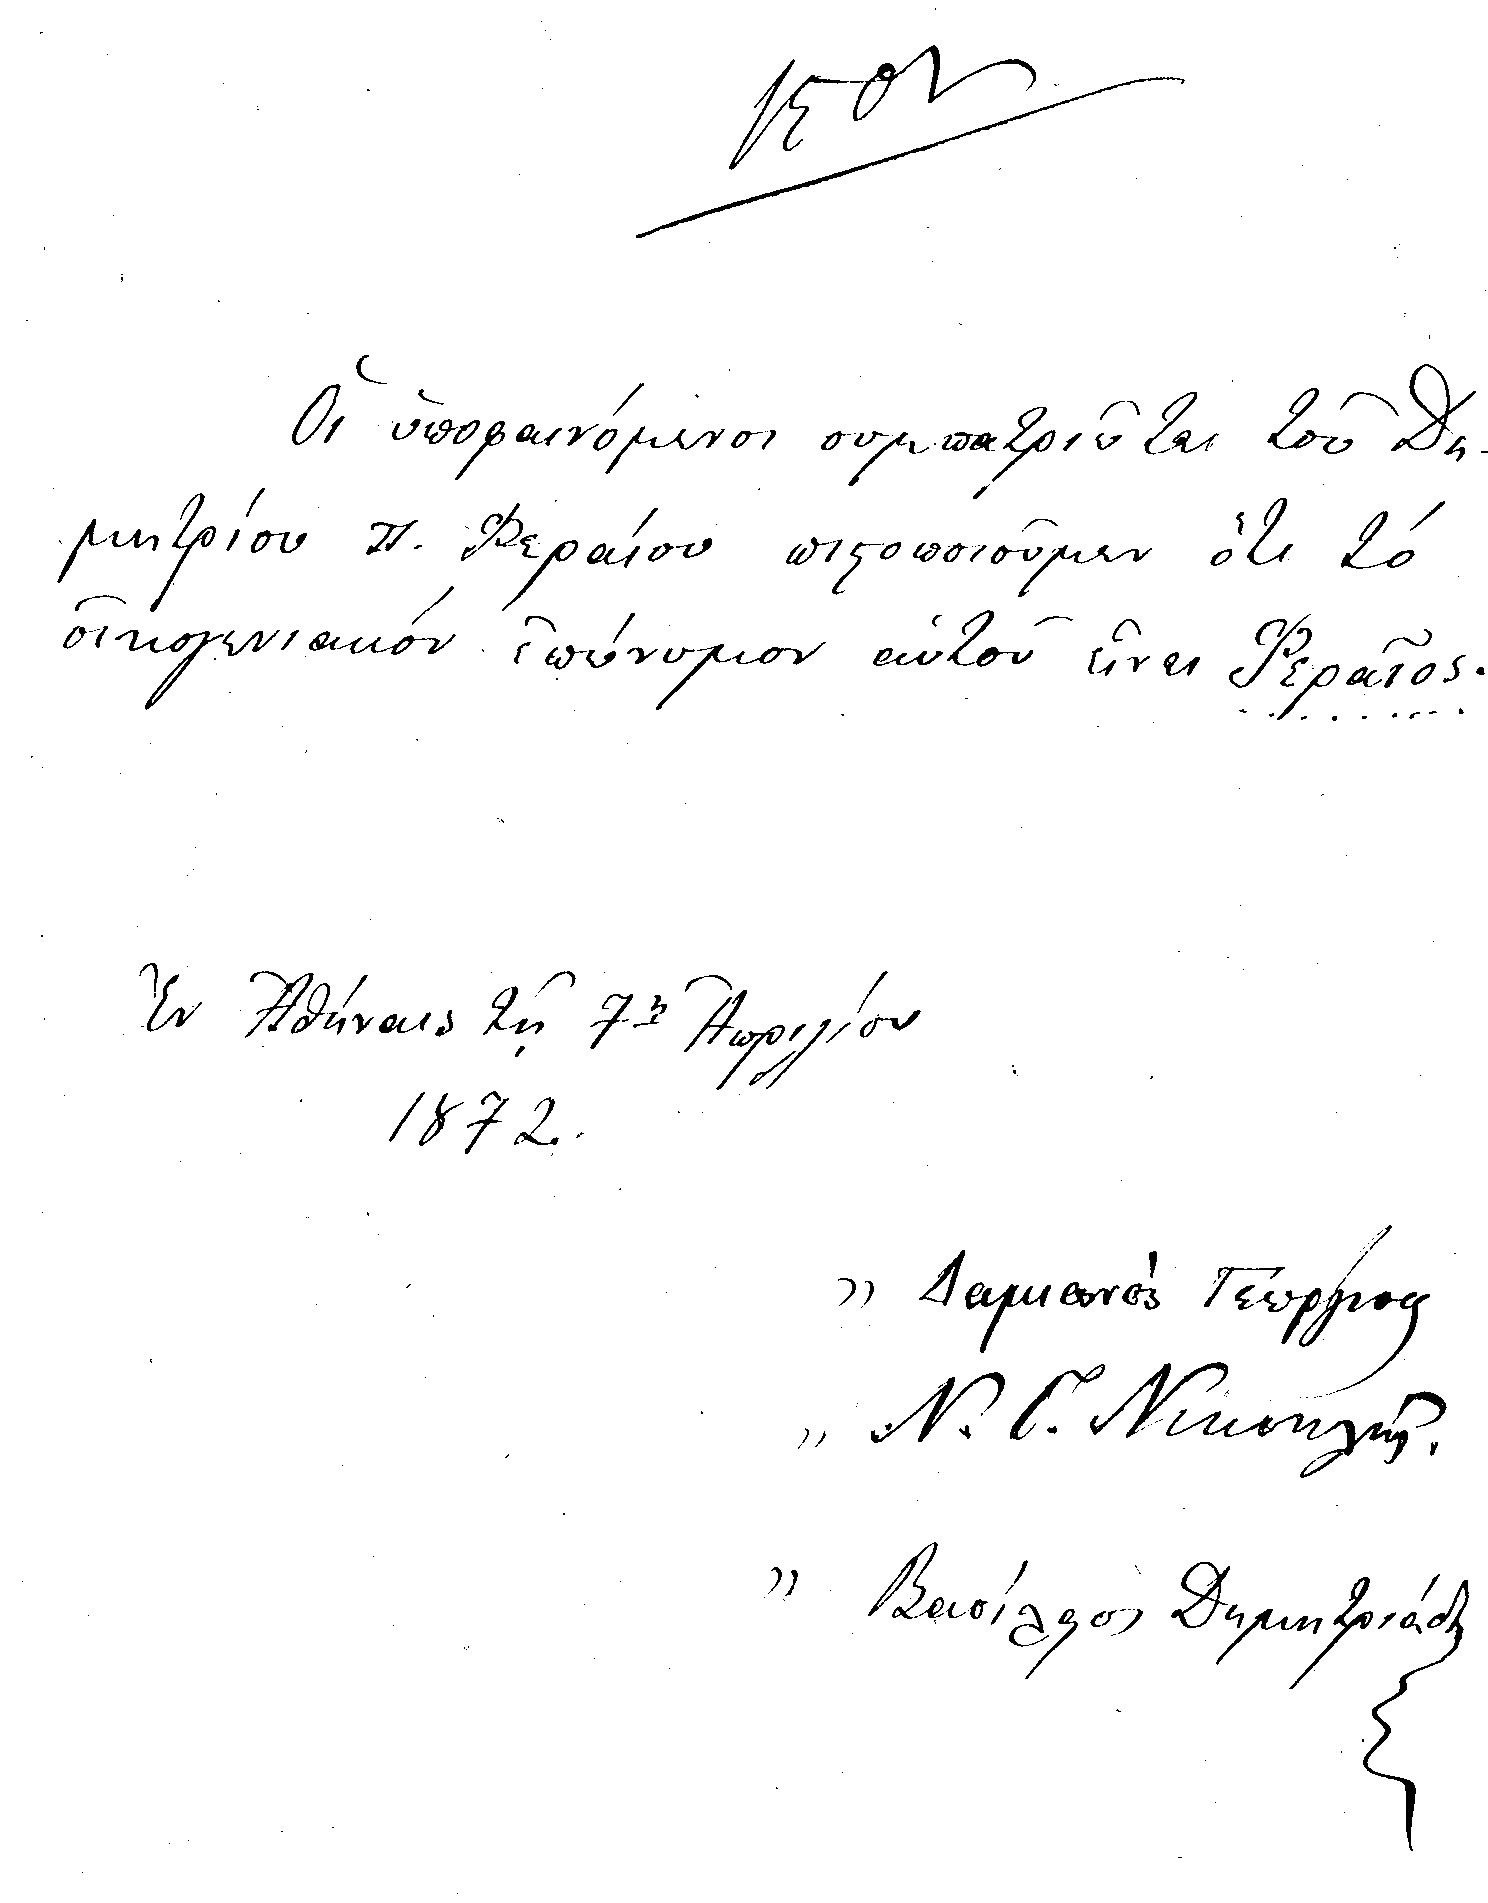 Ἴσον
Οἱ ὑποφαινόμενοι συμπατριῶται τοῦ Δη-
μητρίου Π. Φεραίου πιστοποιοῦμεν ὅτι τό
οἰκογενιακόν ἐπώνυμον αὐτοῦ εἶναι Φεραῖος.
Ἐν Ἀθήναις τῇ 7ῃ Ἀπριλίου
1872.
„ Δαμιανός Γεωργίου
„ Ν. Γ. Νικοκλῆς.
„ Βασίλειος Δημητριάδης